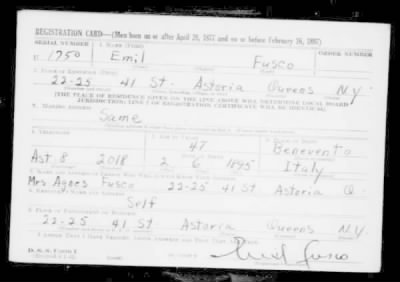 REGISTRATION CARD—(Men born on or after April 28, 1877 and on or before February 16, 1897)
SERIAL NUMBER 1. NAME (Print) ORDER NUMBER
U 1950 Emil Fusco
2. PLACE OF RESIDENCE (Print)
22-25 41 St. Astoria Queens N.Y.
(THE PLACE OF RESIDENCE GIVEN ON THE LINE ABOVE WILL DETERMINE LOCAL BOARD
JURISDICTION; LINE 2 OF REGISTRATION CERTIFICATE WILL BE IDENTICAL)
3. MAILING ADDRESS
Same
4. TELEPHONE 5. AGE IN YEARS 6. PLACE OF BIRTH
47 Benevento
Ast. 8 2018 2 6 1895 Italy
7. NAME AND ADDRESS OF PERSON WHO WILL ALWAYS KNOW YOUR ADDRESS
Mrs Agnes Fusco 22-25 41 St Astoria Q.
8. EMPLOYER'S NAME AND ADDRESS
Self
9. PLACE OF EMPLOYMENT OR BUSINESS
22-25 41 St. Astoria Queens N.Y.
I AFFIRM THAT I HAVE VERIFIED ABOVE ANSWERS AND THAT THEY ARE TRUE.
D. S. S. Form 1
Emil Fusco